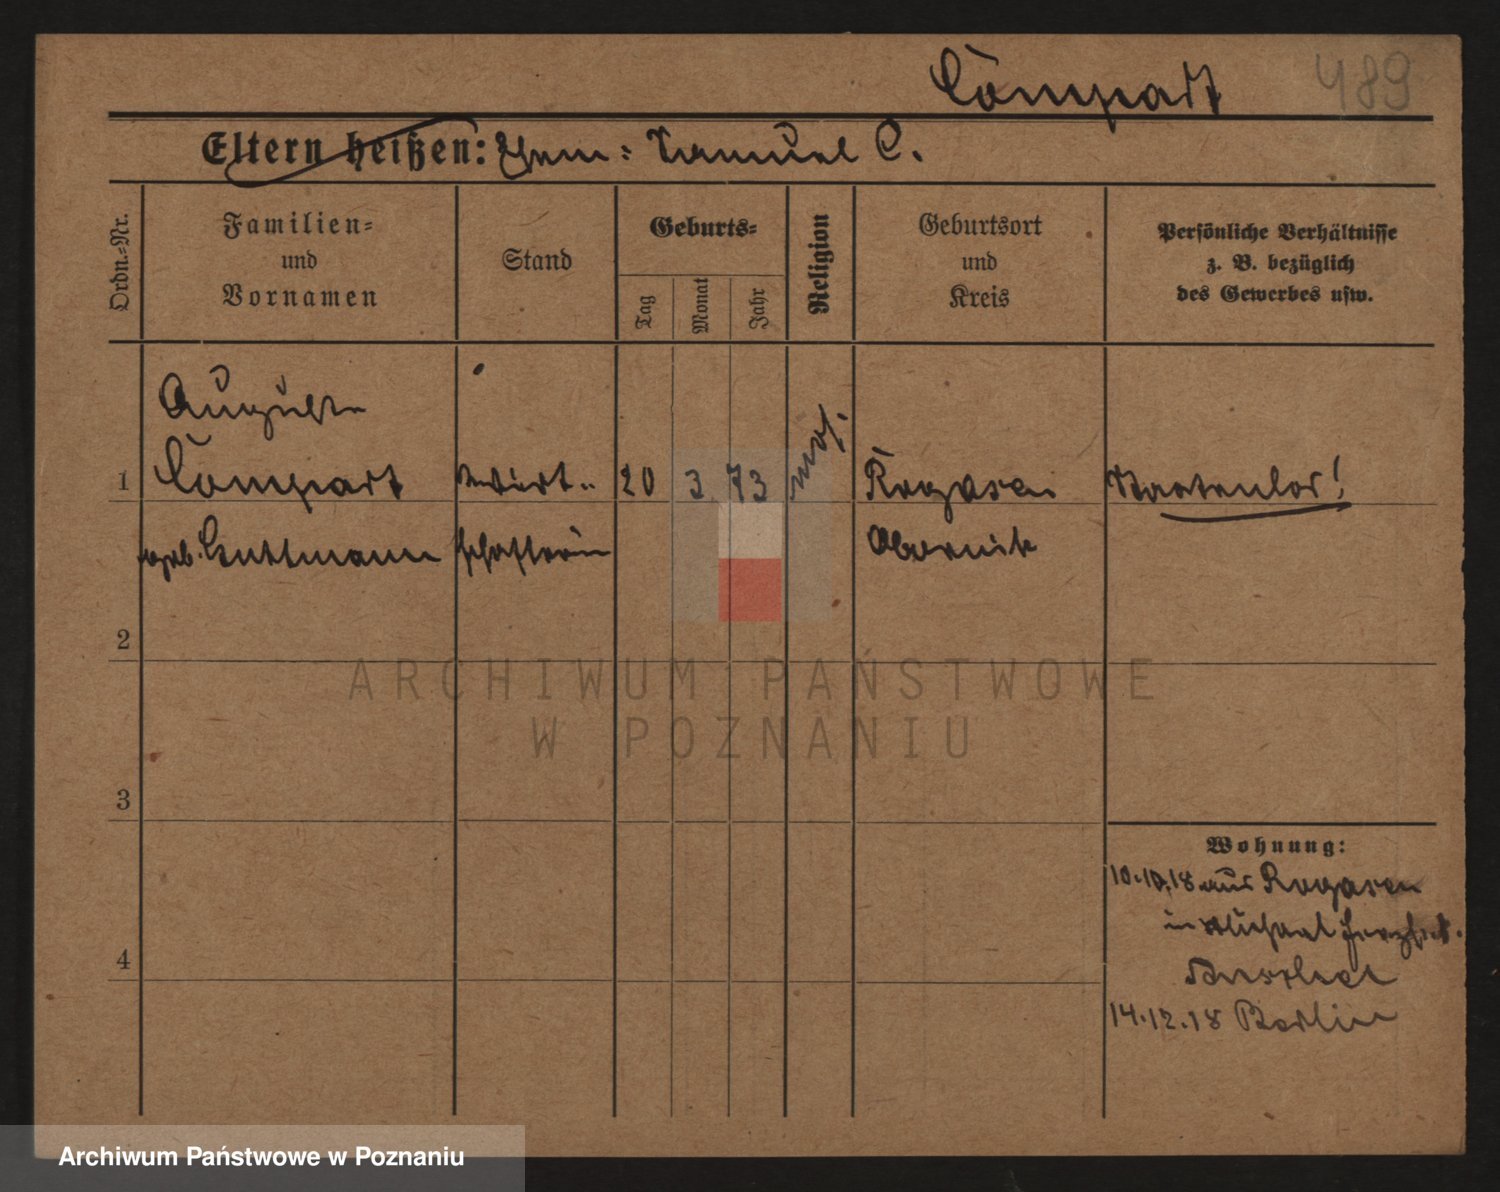 Compart 489
Eltern heißen: Ehem: Samuel C.
Ordn.=Nr.
Familien=
und
Vornamen
Stand
Geburts=
Tag
Monat
Jahr
Religion
Geburtsort
und
Kreis
Persönliche Verhältnisse
z. B. bezüglich
des Gewerbes usw.
Auguste
1 Compart Wirt= 20 3 73 mos. Rogasen Staatenlos!
geb. Guttmann schafterin Obornik
2
ARCHIWUM PAŃSTWOWE
W POZNANIU
3
Wohnung:
10.10.18 aus Rogasen
in
4
14.12.18 Berlin
Archiwum Państwowe w Poznaniu